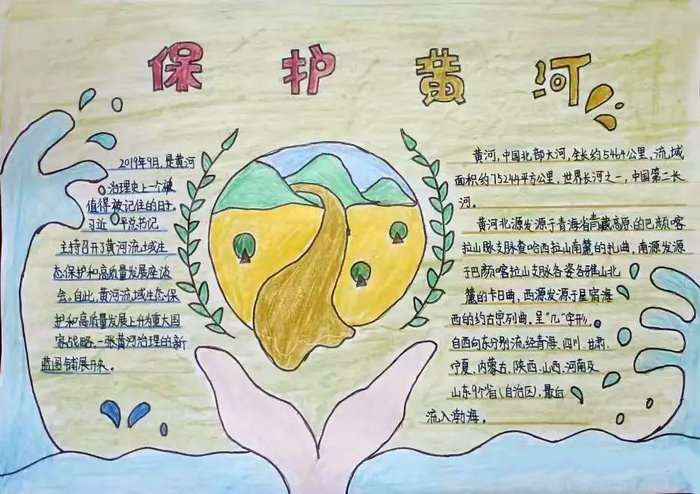 保护黄河
2019年9月,是黄河
治理史上一个被
值得被记住的日子。
习近平总书记
主持召开了黄河流域生
态保护和高质量发展座谈
会。自此,黄河流域生态保
护和高质量发展上升为重大国
家战略,一张黄河治理的新
蓝图铺展开来。
黄河,中国北部大河,全长约5464公里,流域
面积约75244平方公里,世界长河之一,中国第二长
河。
黄河北源发源于青海省青藏高原的巴颜喀
拉山脉支脉查哈西拉山南麓的扎曲,南源发源
于巴颜喀拉山支脉各姿各雅山北
麓的卡日曲,西源发源于星宿海
西的约古宗列曲。呈“几”字形。
自西向东分别流经青海、四川、甘肃、
宁夏、内蒙古、陕西、山西、河南及
山东9个省(自治区),最
流入渤海。